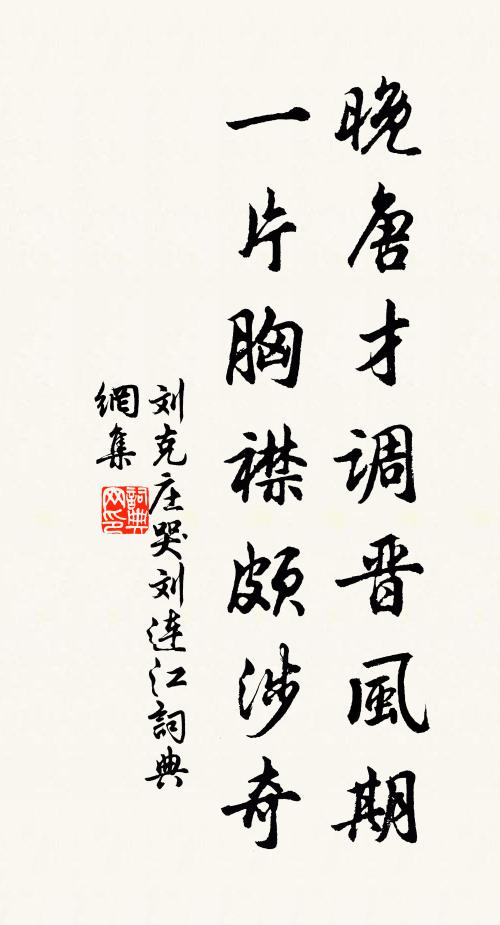 晚唐才调晋風期
一片胸襟頗涉奇
刘克庄哭刘連江詞典
網集
詞典
网印